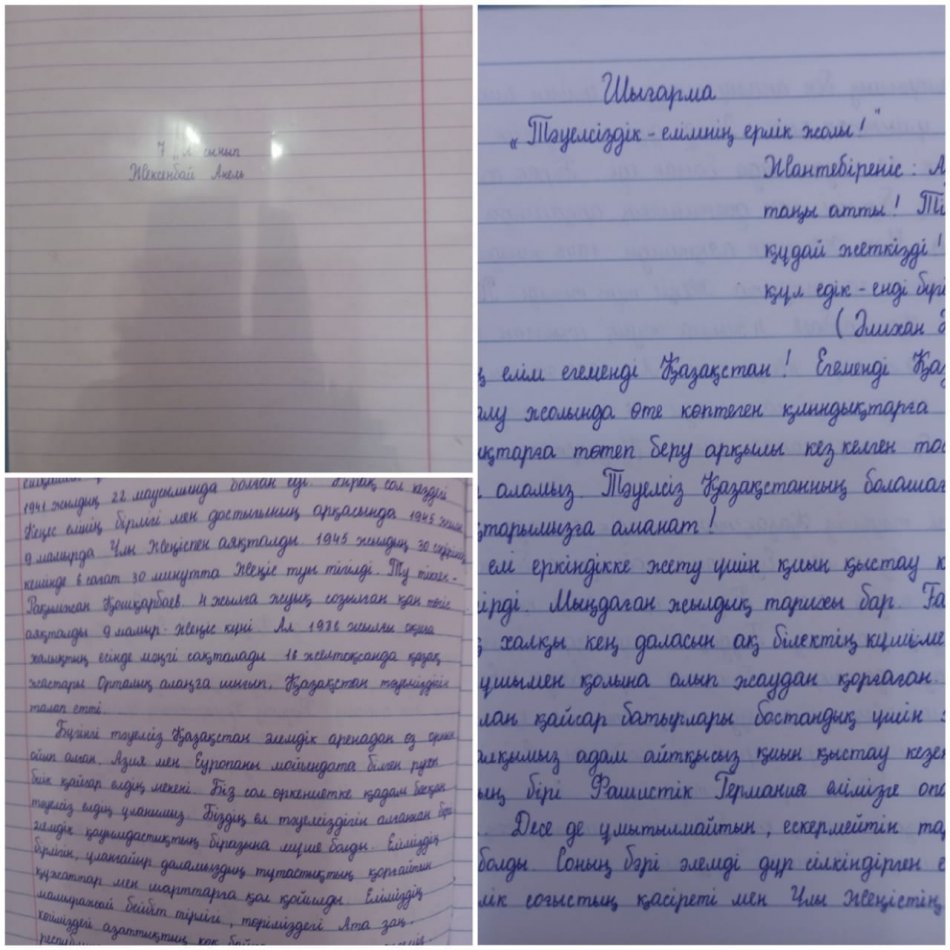 7 "А" сынып
Жексенбай Анель
Шығарма
„Тәуелсіздік - елімнің ерлік жолы!"
Жантебіреніс: А
таңы атты! Ті
құдай жеткізді!
құл едік - енді бір
(Әлихан
ң елім егеменді Қазақстан! Егеменді Қаз
алу жолында өте көптеген қиындықтарға
қтарға төтеп беру арқылы кез келген
аламыз. Тәуелсіз Қазақстанның болаша
тарымызға аманат!
елі еркіндікке жету үшін қиын қыстау к
ірді. Мыңдаған жылдық тарихы бар. Ға
халқы кең даласын ақ білектің күшімен
ушымен қолына алып жаудан қорғаған.
лан қайсар батырлары бостандық үшін
алқымыз адам айтқысыз қиын қыстау кезе
ың бірі Фашистік Германия елімізге опа
. Десе де ұмытылмайтын, ескермейтін та
болды. Соның бәрі әлемді дүр сілкіндірген
лік соғыстың қасіреті мен Ұлы Жеңістің
1941 жылдың 22 маусымында болған еді. Бірақ сол кездегі
Кеңес елінің бірлігі мен достығының арқасында 1945 жылы
9 мамырда Ұлы Жеңіспен аяқталды 1945 жылдың 30 сәуірінің
кешінде 6 сағат 30 минутта Жеңіс туы тігілді. Ту тіккен -
Рақымжан Қошқарбаев. 4 жылға жуық созылған қан төгіс
аяқталды 9 мамыр - Жеңіс күні. Ал 1986 жылғы оқиға
халықтың есінде мәңгі сақталады 16 желтоқсанда қазақ
жастары Орталық алаңға шығып, Қазақстан тәуелсіздігін
талап етті.
Бүгінгі тәуелсіз Қазақстан әлемдік аренадан өз орнын
ойып алған. Азия мен Еуропаны мойындата білген рухы
биік қайсар елдің мекені. Біз сол өркениетке қадам басқан
тәуелсіз елдің ұланымыз. Біздің ел тәуелсіздігін алғаннан бері
әлемдік қауымдастықтың біразына мүше болды. Еліміздің
бірлігін, ұланғайыр даламыздың тұтастықтың қорғайтын
құжаттар мен шарттарға қол қойылды. Еліміздің
мамыражай бейбіт тірлігі, төріміздегі Ата заң,
көгіміздегі азаттықтың көк